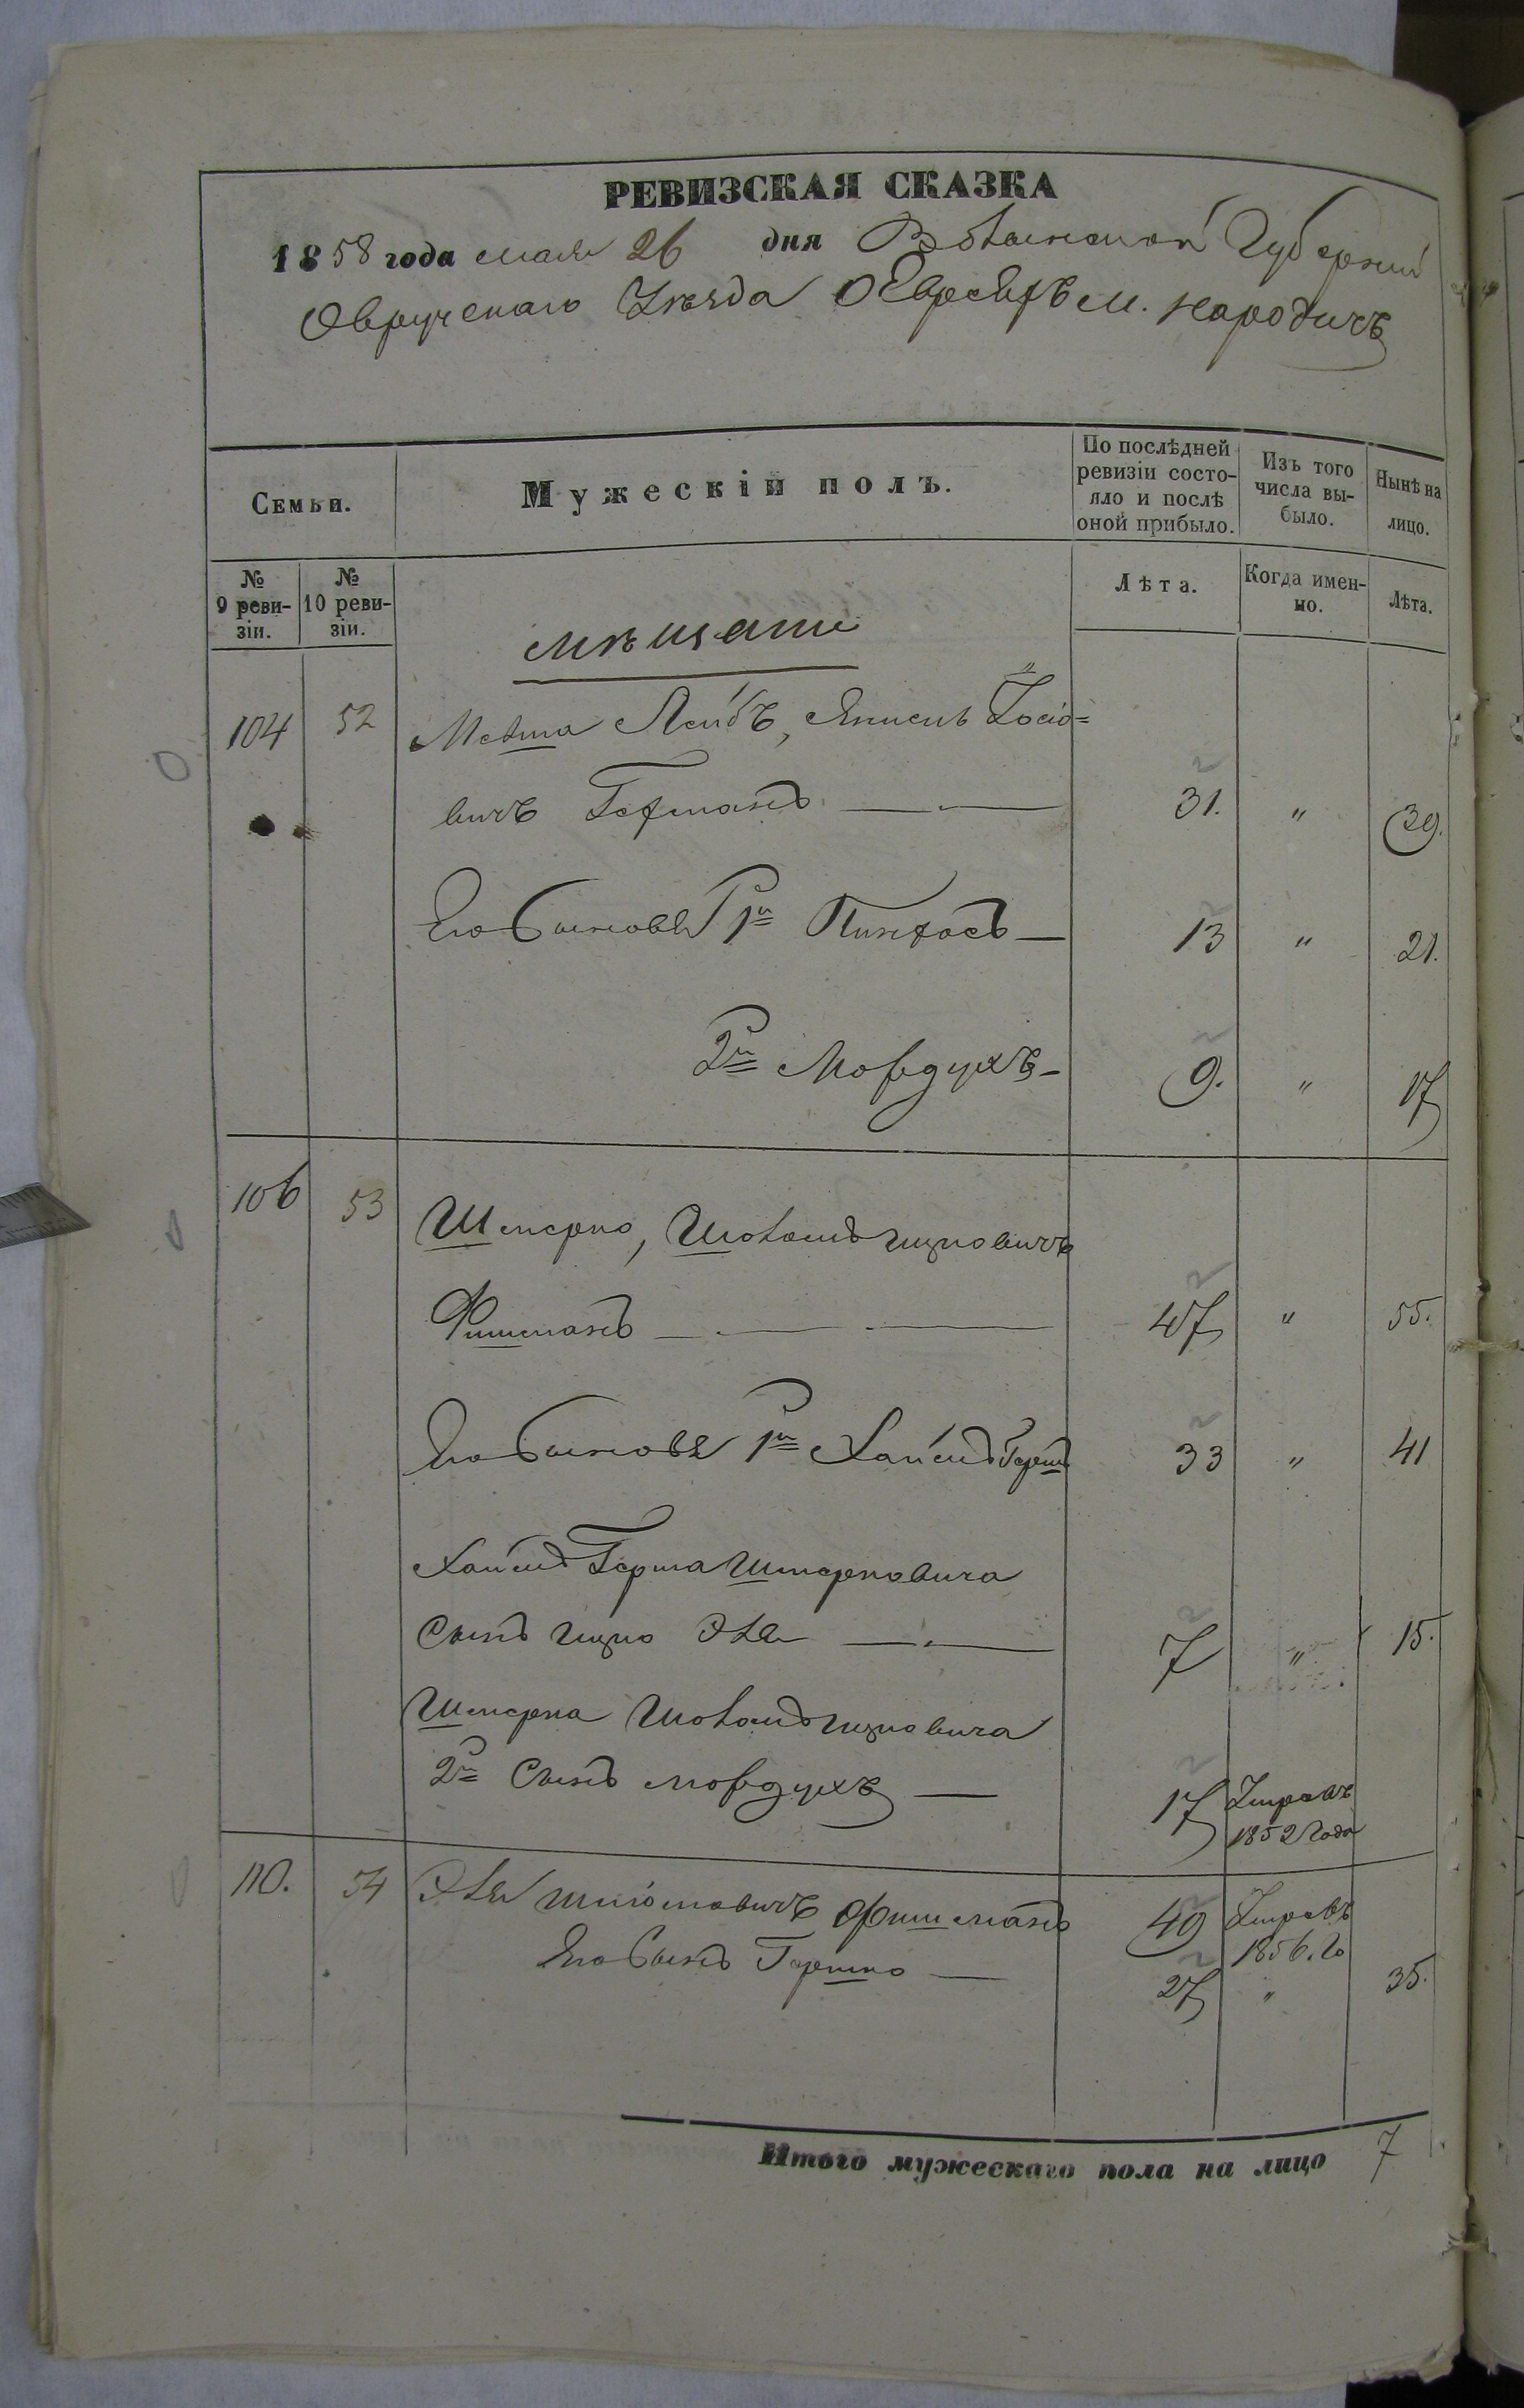 РЕВИЗСКАЯ СКАЗКА
1858 года мая 26 дня Волынской Губернии
Овручскаго Уѣзда О Евреяхъ м. Народичъ
Семьи.
Мужескій полъ.
По послѣдней ревизіи состо-
яло и послѣ
оной прибыло.
Изъ того
числа вы-
было.
Нынѣ на
лицо.
№
9 реви-
зіи.
№
10 реви-
зіи.
Лѣта.
Когда имен-
но.
Лѣта.
мѣщане
104 52 Лейбъ, Іосіо=
вичъ 31. " 39.
Его Сыновья 1й Пинхасъ 13 " 21.
2й Мордухъ 9. " 17
106 53 Шмерко, Шоломъ Ицковичъ
Фишманъ 47 " 55.
Его Сыновья 1й Хаимъ Гершъ 33 " 41
Хаимъ Герша Шмерковича
Сынъ Ицко Эля 7 " 15.
Шмерка Шоломъ Ицковича
2й Сынъ Мордухъ 17 Умръ въ
1852 Года
110. 54 Эля Фишманъ 49 Умръ въ
1856. Го
Его Сынъ Гершко 27 " 35.
Итого мужескаго пола на лицо 7